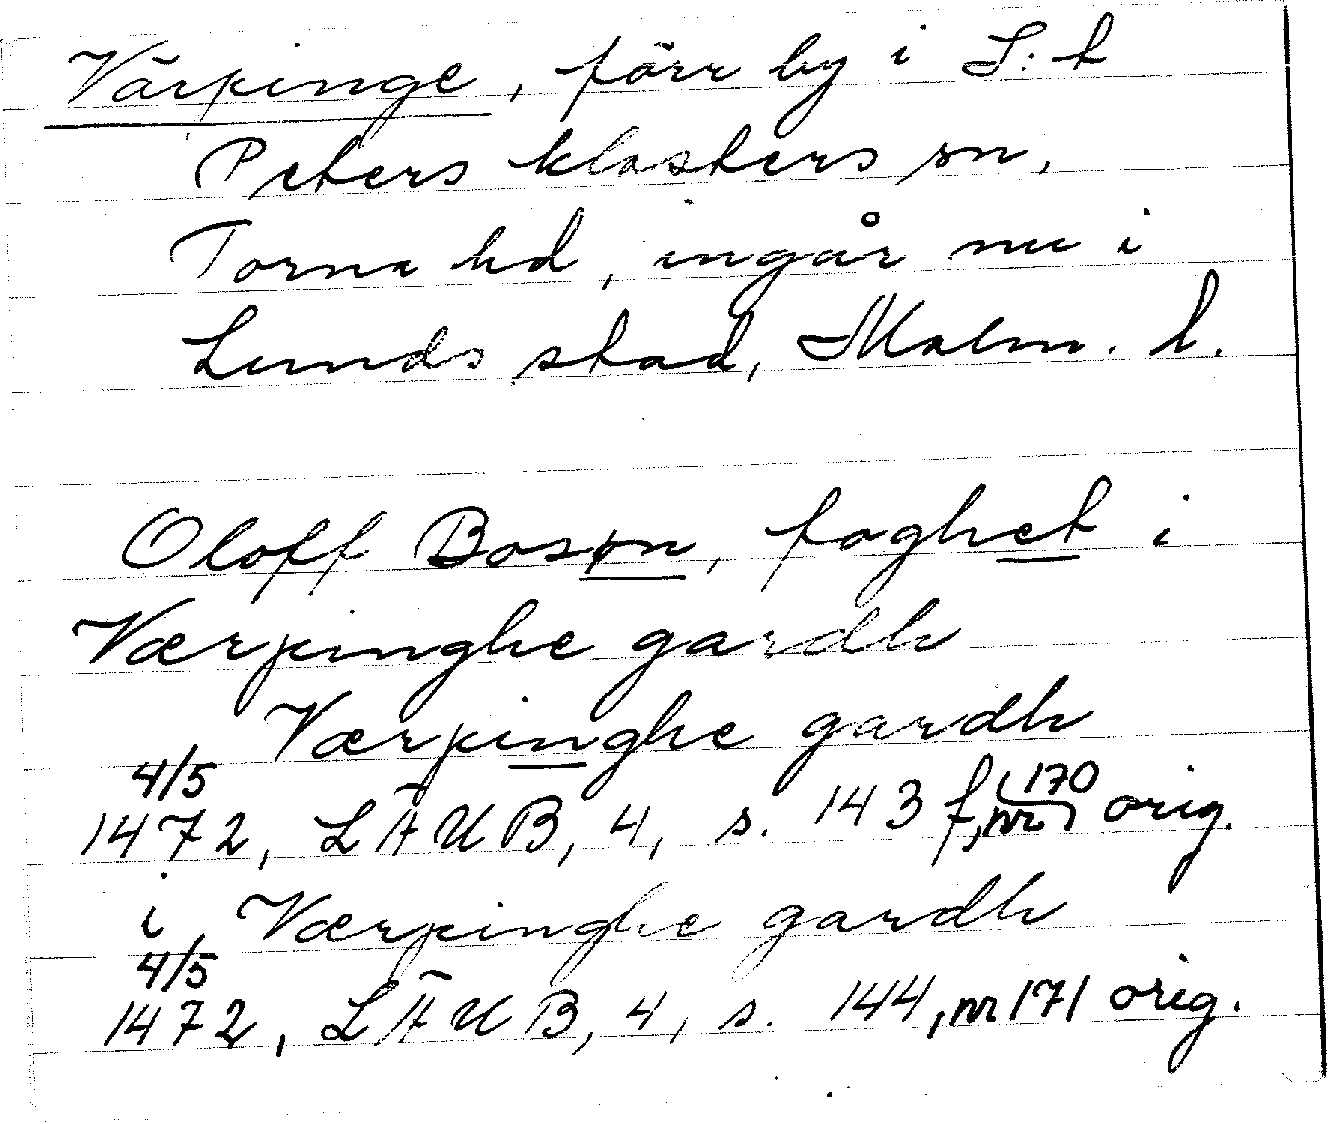 Värpinge, förr by i S:t
Peters klosters sn,
Torna hd, ingår nu i
Lunds stad, Malm. l.
Oloff Bosøn, foghet i
Værpinghe gardh
Værpinghe gardh
4/5
1472, LÄUB, 4, s. 143 f, nr 170 orig.
i Værpinghe gardh
4/5
1472, LÄUB, 4, s. 144, nr 171 orig.